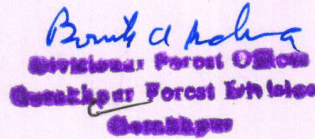 Divisional Forest Officer
Gorakhpur Forest Division
Gorakhpur